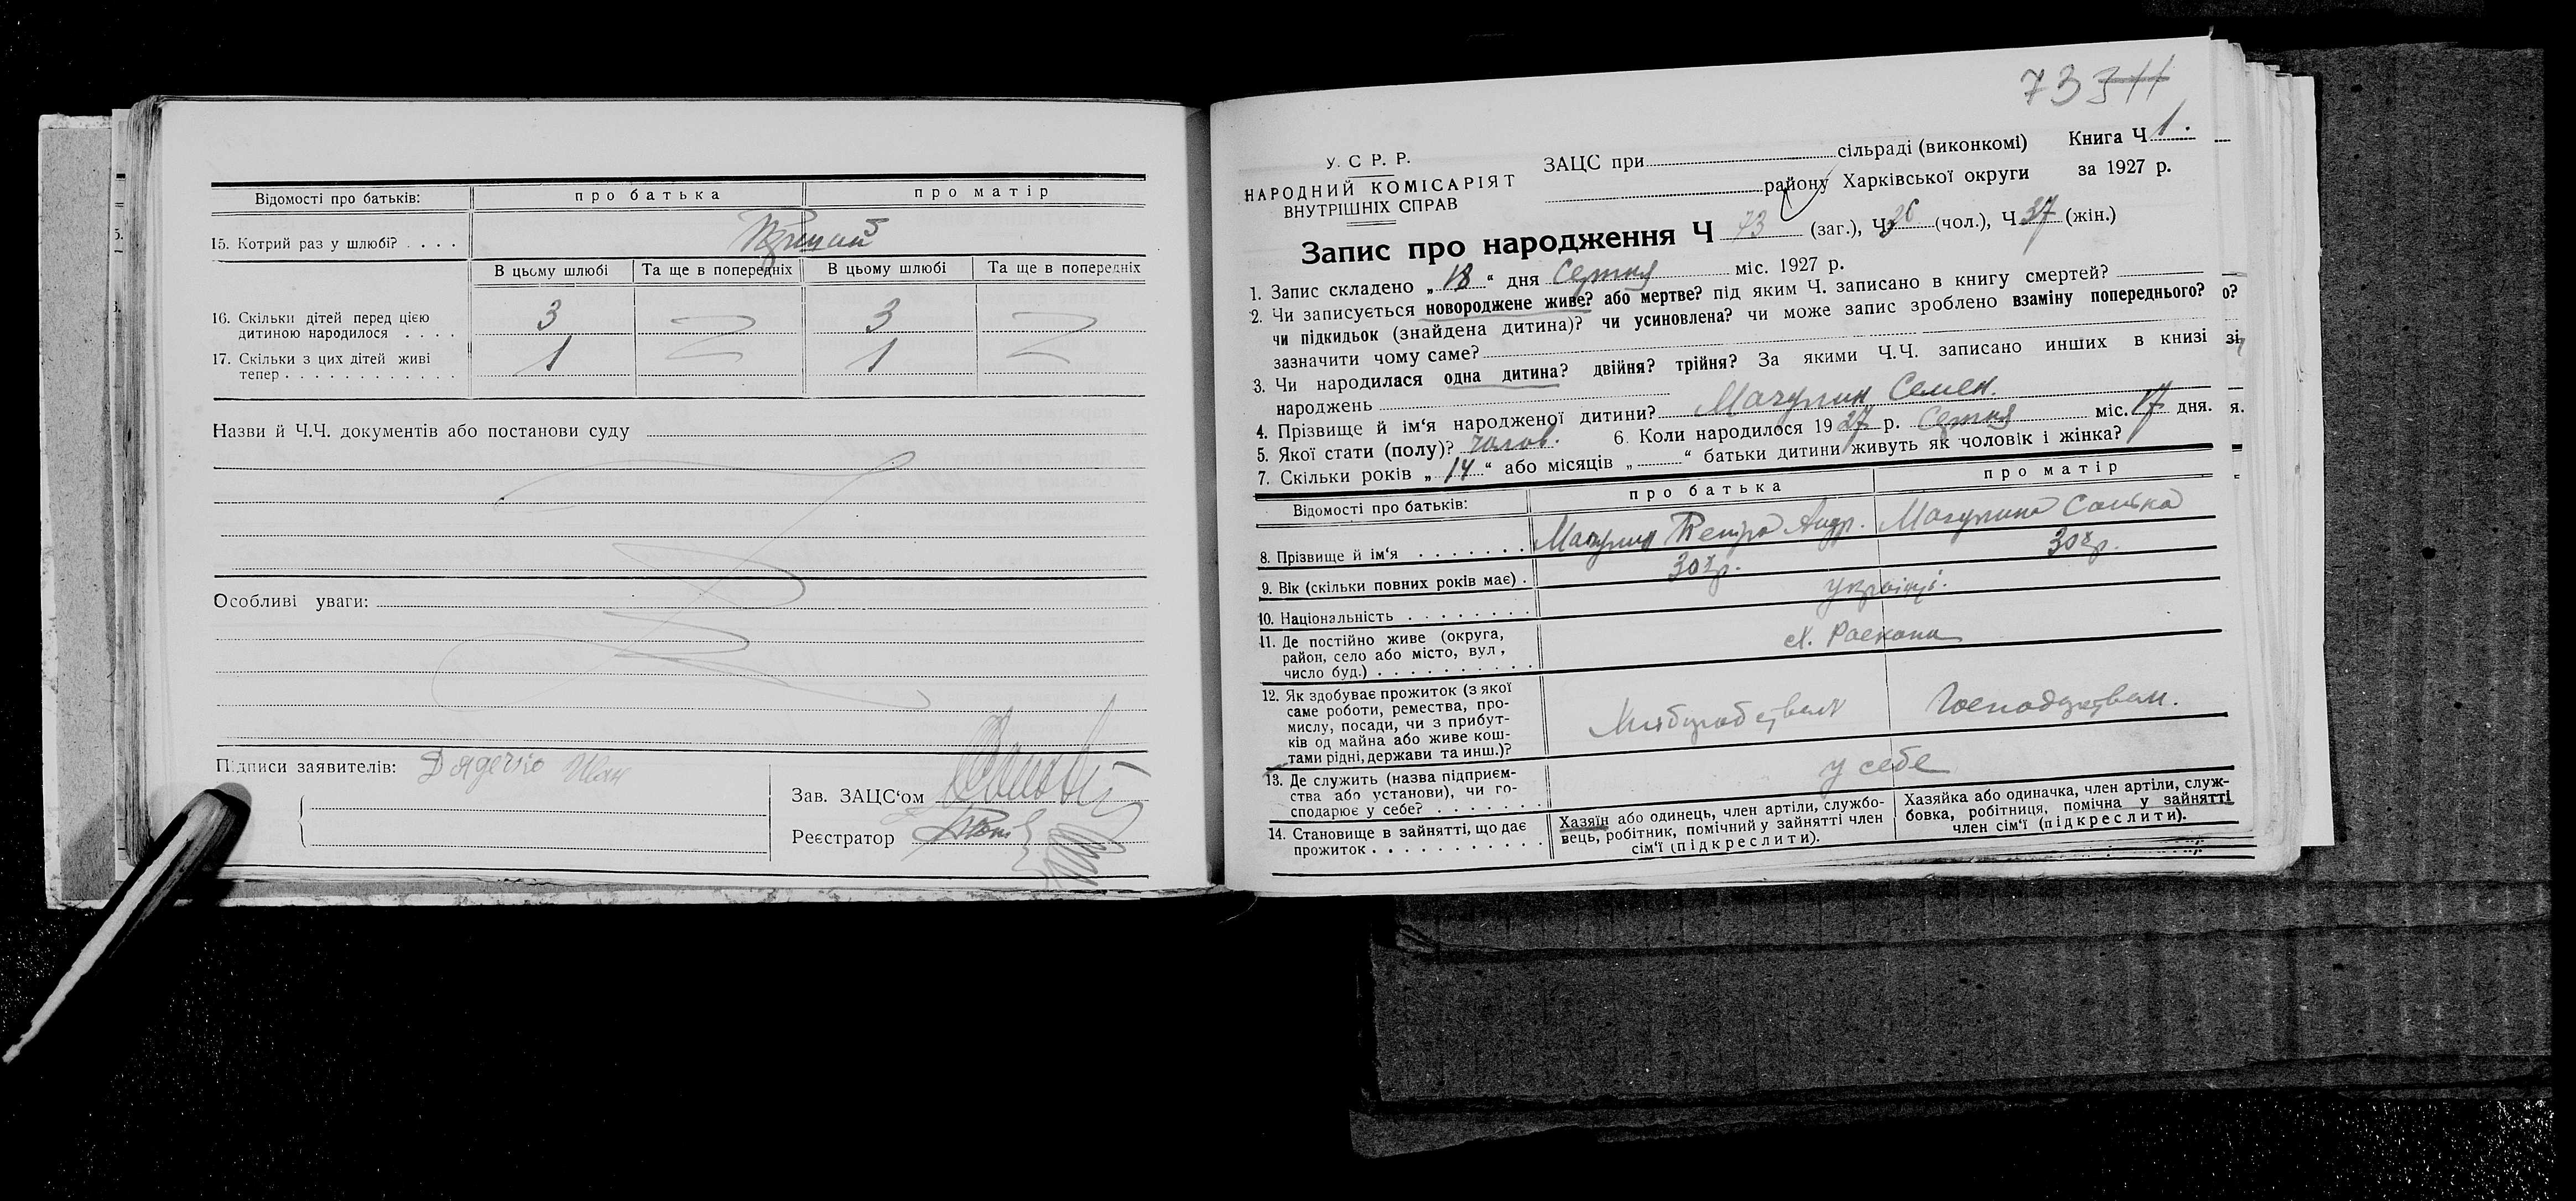 Відомості про батьків: про батька про матір
15. Котрий раз у шлюбі? . . . . Перший
В цьому шлюбі Та ще в попередніх В цьому шлюбі Та ще в попередніх
16. Скільки дітей перед цією
дитиною народилося . . . . 3 3
17. Скільки з цих дітей живі
тепер . . . . . . . . . . . . 1 1
Назви й Ч.Ч. документів або постанови суду
Особливі уваги:
Підписи заявителів:
Зав. ЗАЦС‘ом
Реєстратор
73 311
У. С Р. Р.
НАРОДНИЙ КОМІСАРІЯТ
ВНУТРІШНІХ СПРАВ
ЗАЦС при сільраді (виконкомі) Книга Ч 1.
району Харківської округи за 1927 р.
Запис про народження Ч 73 (заг.), Ч 36 (чол.), Ч 37 (жін.)
1. Запис складено „ 18 “ дня Серпня міс. 1927 р.
2. Чи записується новороджене живе? або мертве? під яким Ч. записано в книгу смертей?
чи підкидьок (знайдена дитина)? чи усиновлена? чи може запис зроблено взаміну попереднього? о?
зазначити чому саме?
3. Чи народилася одна дитина? двійня? трійня? За якими Ч.Ч. записано инших в книзі зі
народжень
4. Прізвище й ім‘я народженої дитини? Мачулин Семен.
5. Якої стати (полу)? чолов. 6. Коли народилося 1927 р. Серпня міс. 17 дня. я.
7. Скільки років „ 14 “ або місяців „ “ батьки дитини живуть як чоловік і жінка?
Відомості про батьків: про батька про матір
8. Прізвище й ім‘я . . . . . . . Мачулин Петро Андр. Мачулина
9. Вік (скільки повних років має) . 30 р. 30 р.
10. Національність . . . . . . . українці.
11. Де постійно живе (округа,
район, село або місто, вул,
число буд.) . . . . . . . . . х. Роскопи
12. Як здобуває прожиток (з якої
саме роботи, ремества, про-
мислу, посади, чи з прибут-
ків од майна або живе кош-
тами рідні, держави та инш.)? Хліборобством Господарством.
13. Де служить (назва підприєм-
ства або установи), чи го-
сподарює у себе? . . . . . . . у себе
14. Становище в зайнятті, що дає
прожиток . . . . . . . . . . .
Хазяїн або одинець, член артіли, службо-
вець, робітник, помічний у зайнятті член
сім‘ї (підкреслити).
Хазяйка або одиначка, член артіли, служ-
бовка, робітниця, помічна у зайнятті
член сім‘ї (підкреслити).